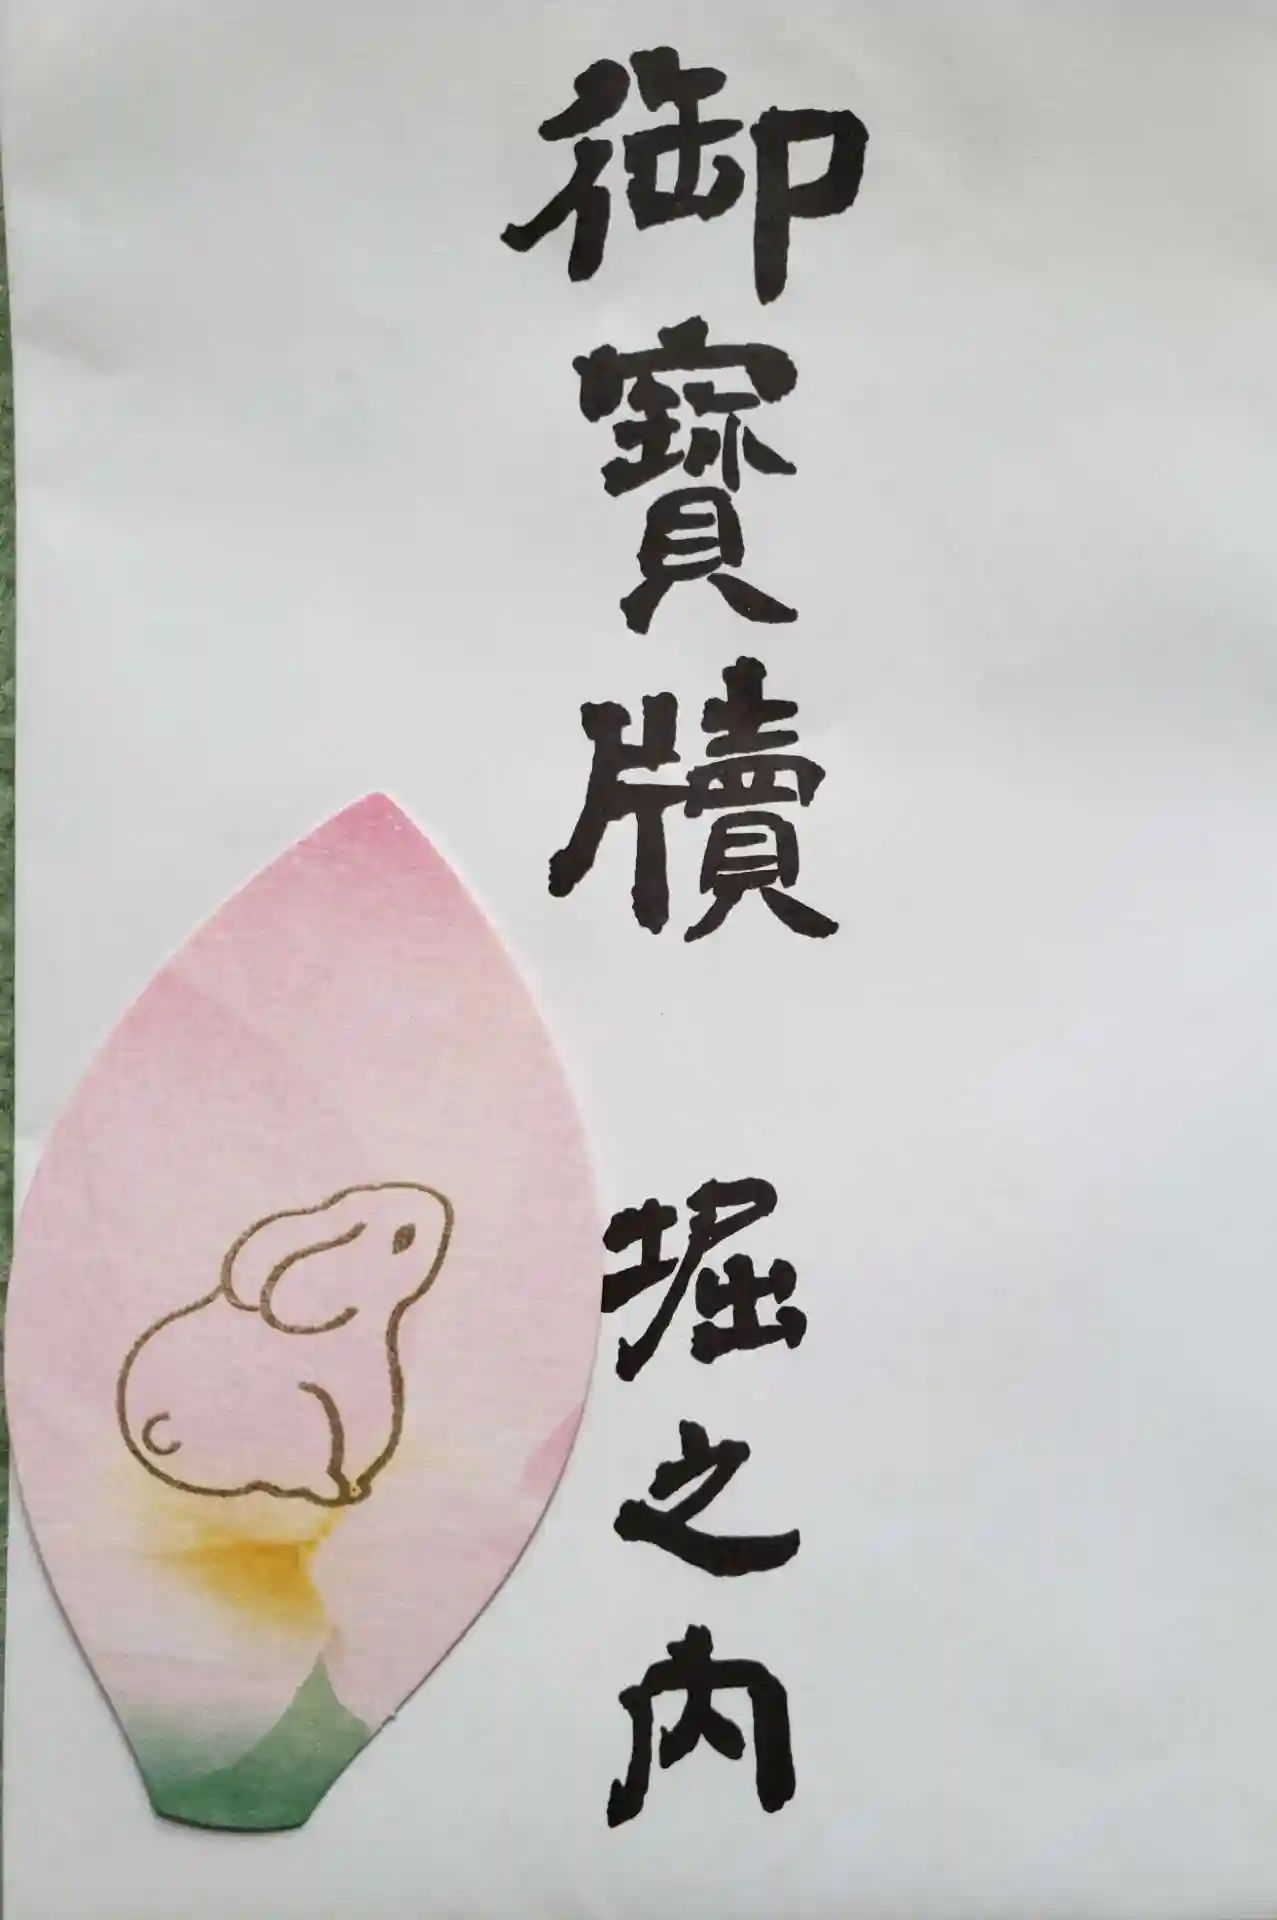 御寳牘 堀之内